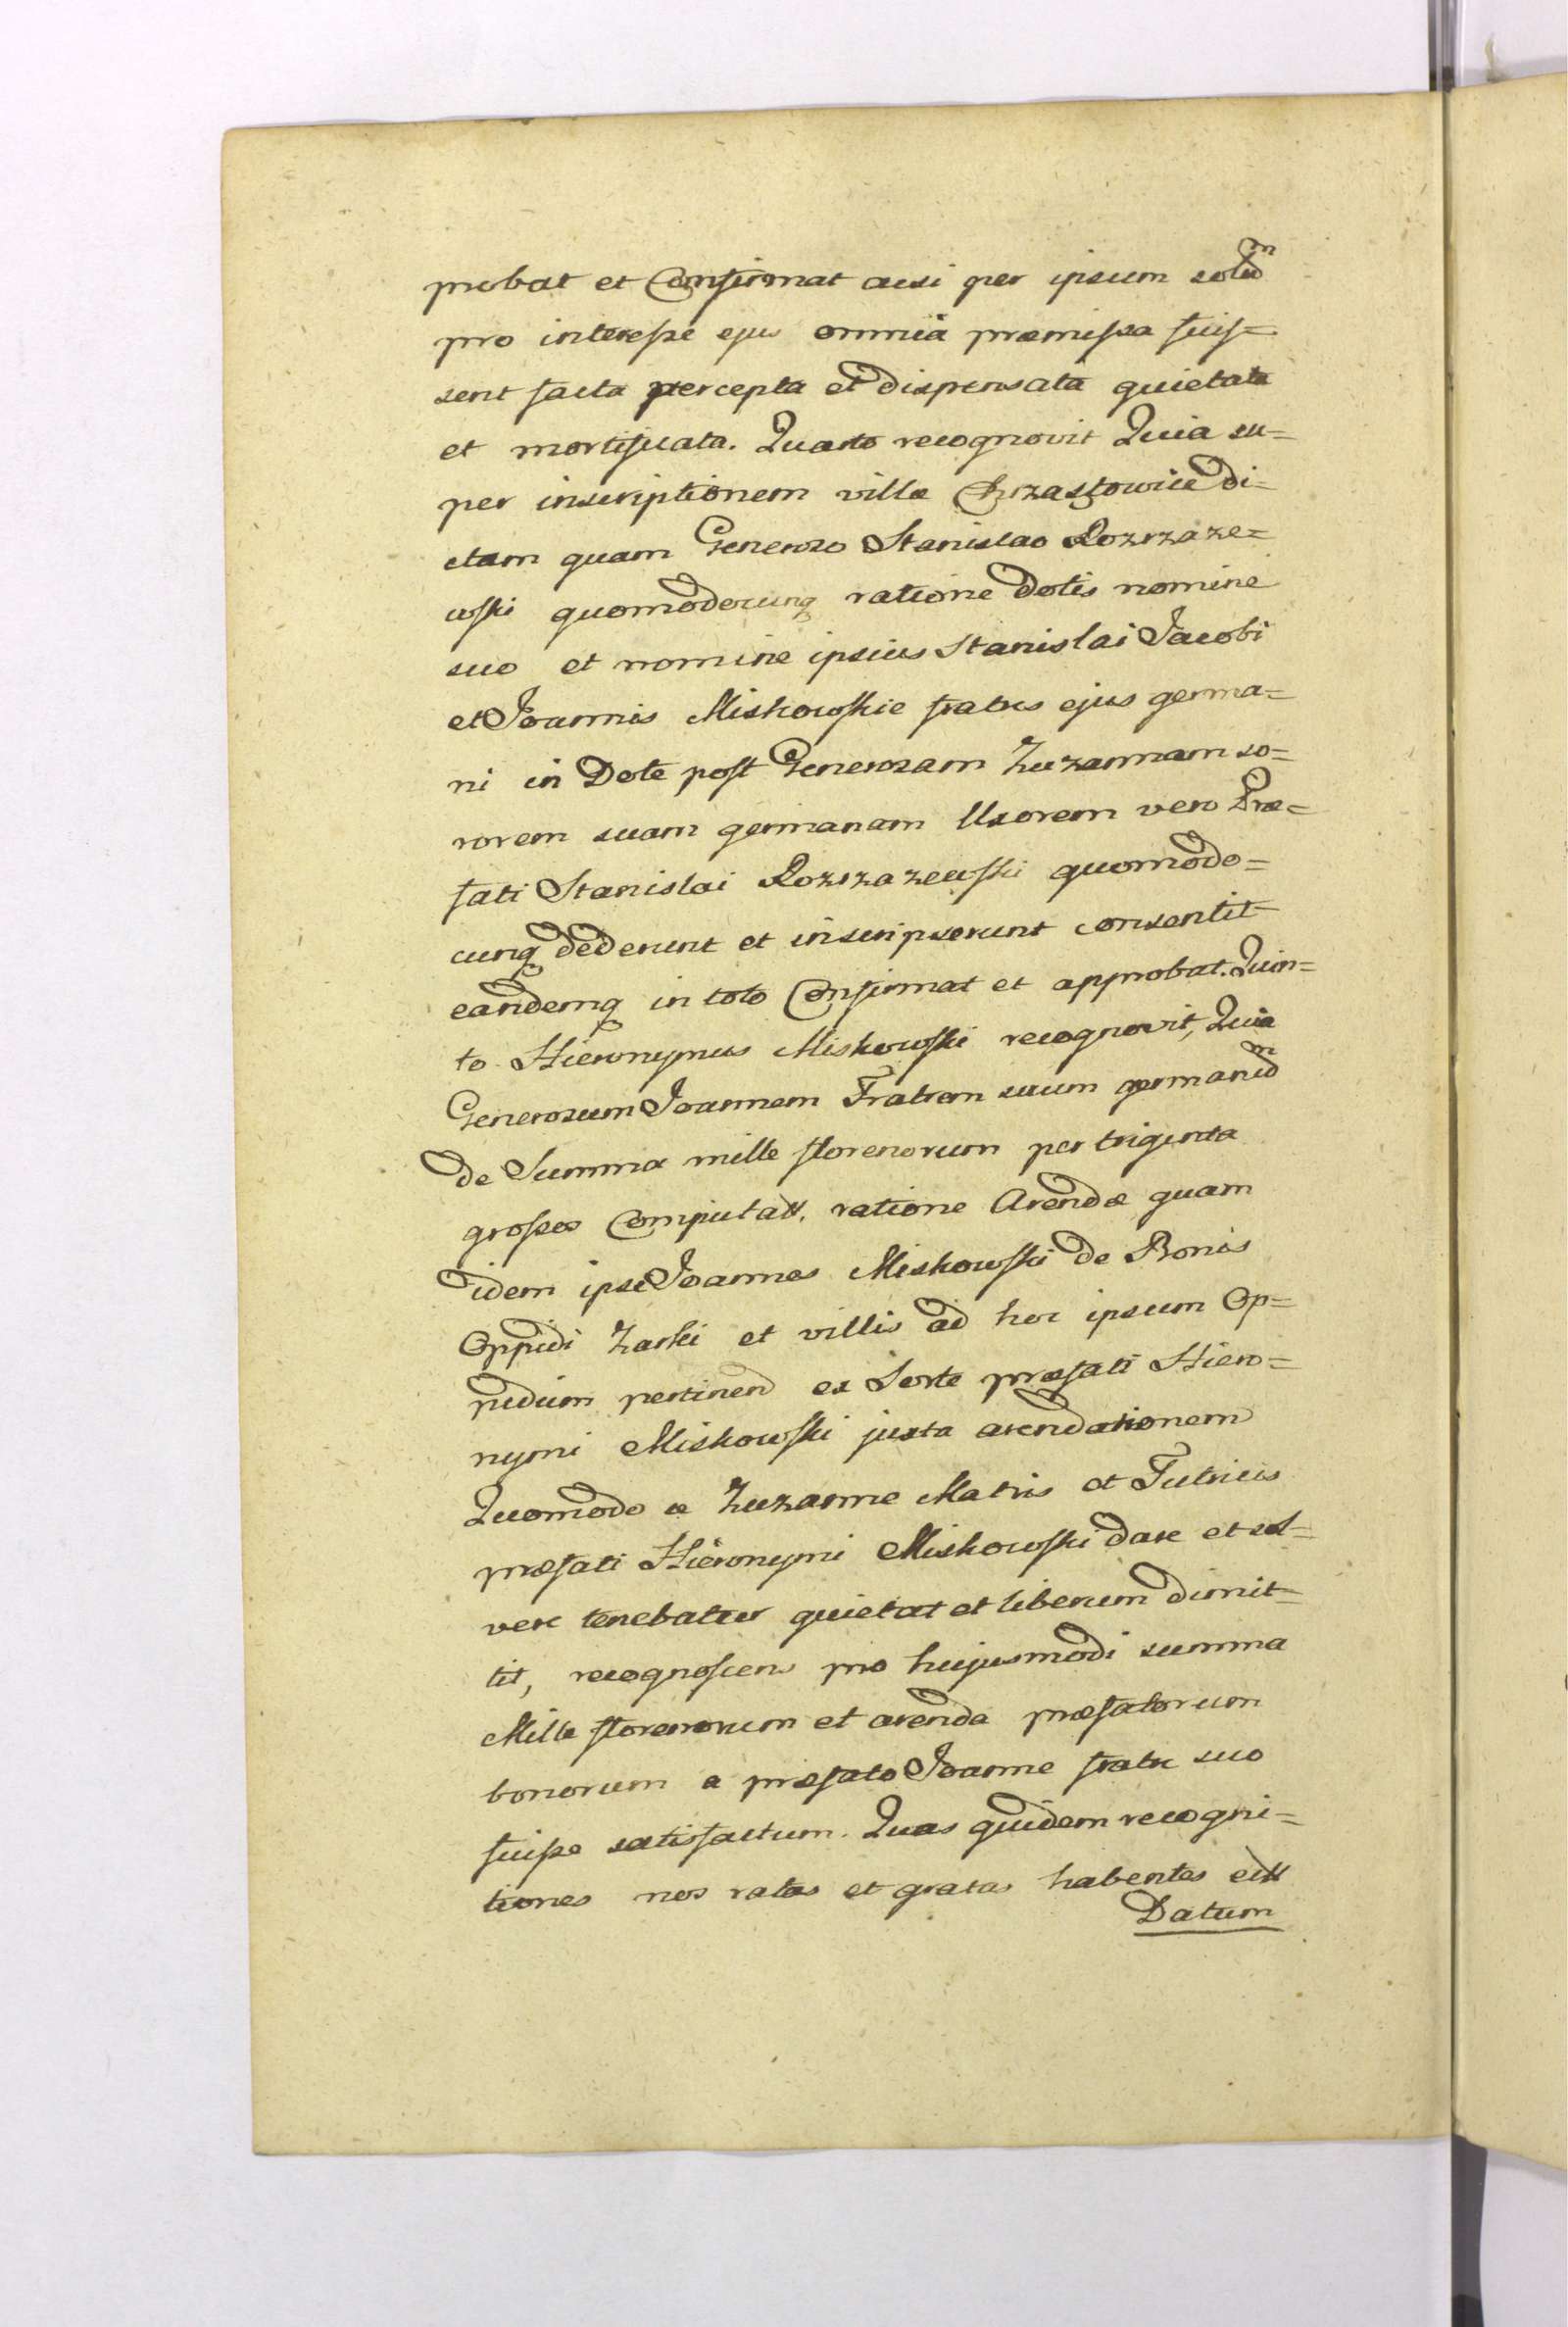 probat et Confirmat acsi per ipsum solū
pro interesse ejus omnia præmissa fuis=
sent facta percepta et dispensata quietata
et mortificata. Quarto recognovit Quia su=
per inscriptionem villæ Chrzastowice di=
ctam quam Generoso Stanislao Rozrzaze=
wski quomodocunq ratione Dotis nomine
suo et nomine ipsius Stanislai Jacobi
et Joannis Miskowskie fratris ejus germa=
ni in Dote post Generosam Zuzannam so=
rorem suam germanam Uxorem vero Præ=
fati Stanislai Rozrzazewski quomodo=
cunq dederunt et inscripserunt consentit
eandemq in toto Confirmat et approbat. Quin=
to Hieronymus Miskowski recognovit, Quia
Generosum Joannem Fratrem suum germanum
de Summa mille florenorum per triginta
grossos Computatt. ratione Arendæ quam
idem ipse Joannes Miskowski de Bonis
Oppidi Zarki et villis ad hoc ipsum Op=
pidum pertinend ex Sorte præfati Hiero=
nymi Miskowski juxta arendationem
Quomodo a Zuzanne Matris et Tutricis
præfati Hieronymi Miskowski dare et sol=
vere tenebatur quietat et liberum dimit=
tit, recognoscens pro hujusmodi summa
Mille florenorum et arenda præfatorum
bonorum a præfato Joanne fratre suo
fuisse satisfactum. Quas quidem recogni=
tiones nos ratas et gratas habentes eitt
Datum